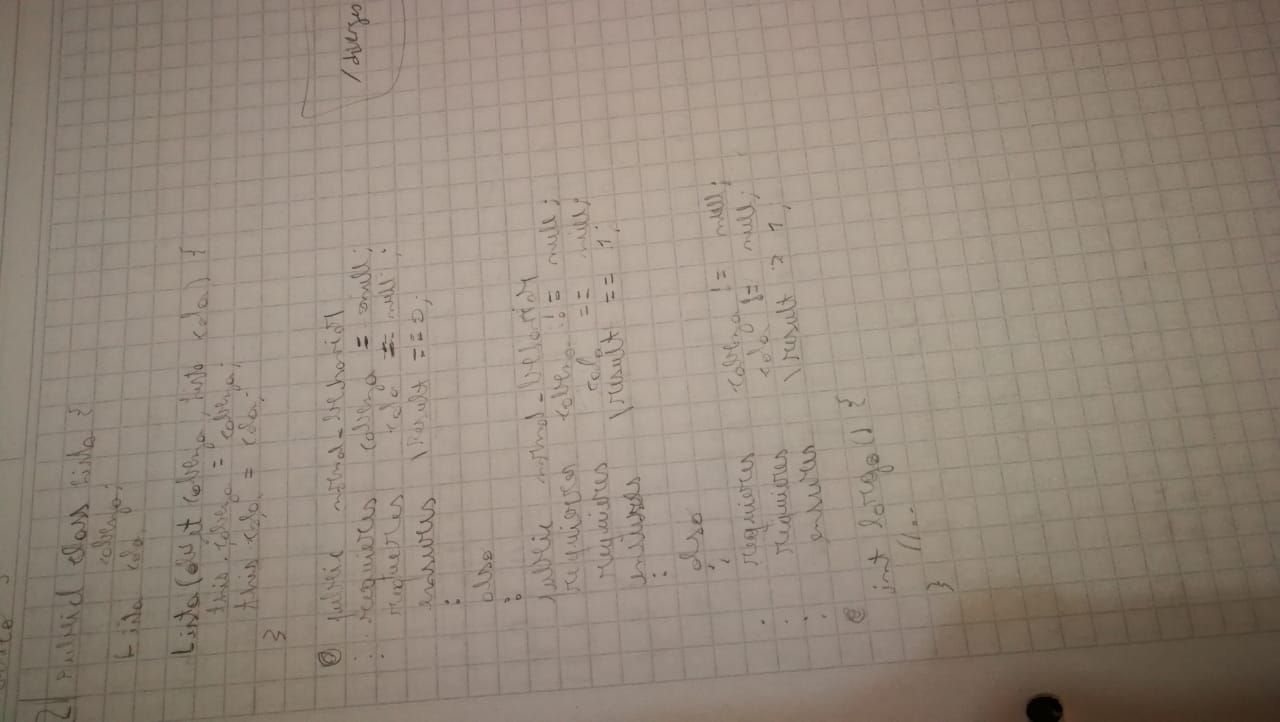 2) public class Lista {
cabeza;
Lista cola
Lista(object cabeza, Lista cola) {
this.cabeza = cabeza;
this cola = cola;
}
@ public normal_behavior
: requieres cabeza = null;
: requieres cola = null;
ensures \Result == 0;
:
also
:
public normal_behavior
requieres cabeza != null;
requieres cola == null;
ensures \result == 1;
:
also
:
. requieres cabeza != null;
. requieres cola != null;
. ensures \result > 1;
@
int largo() {
//..
}
/diverges